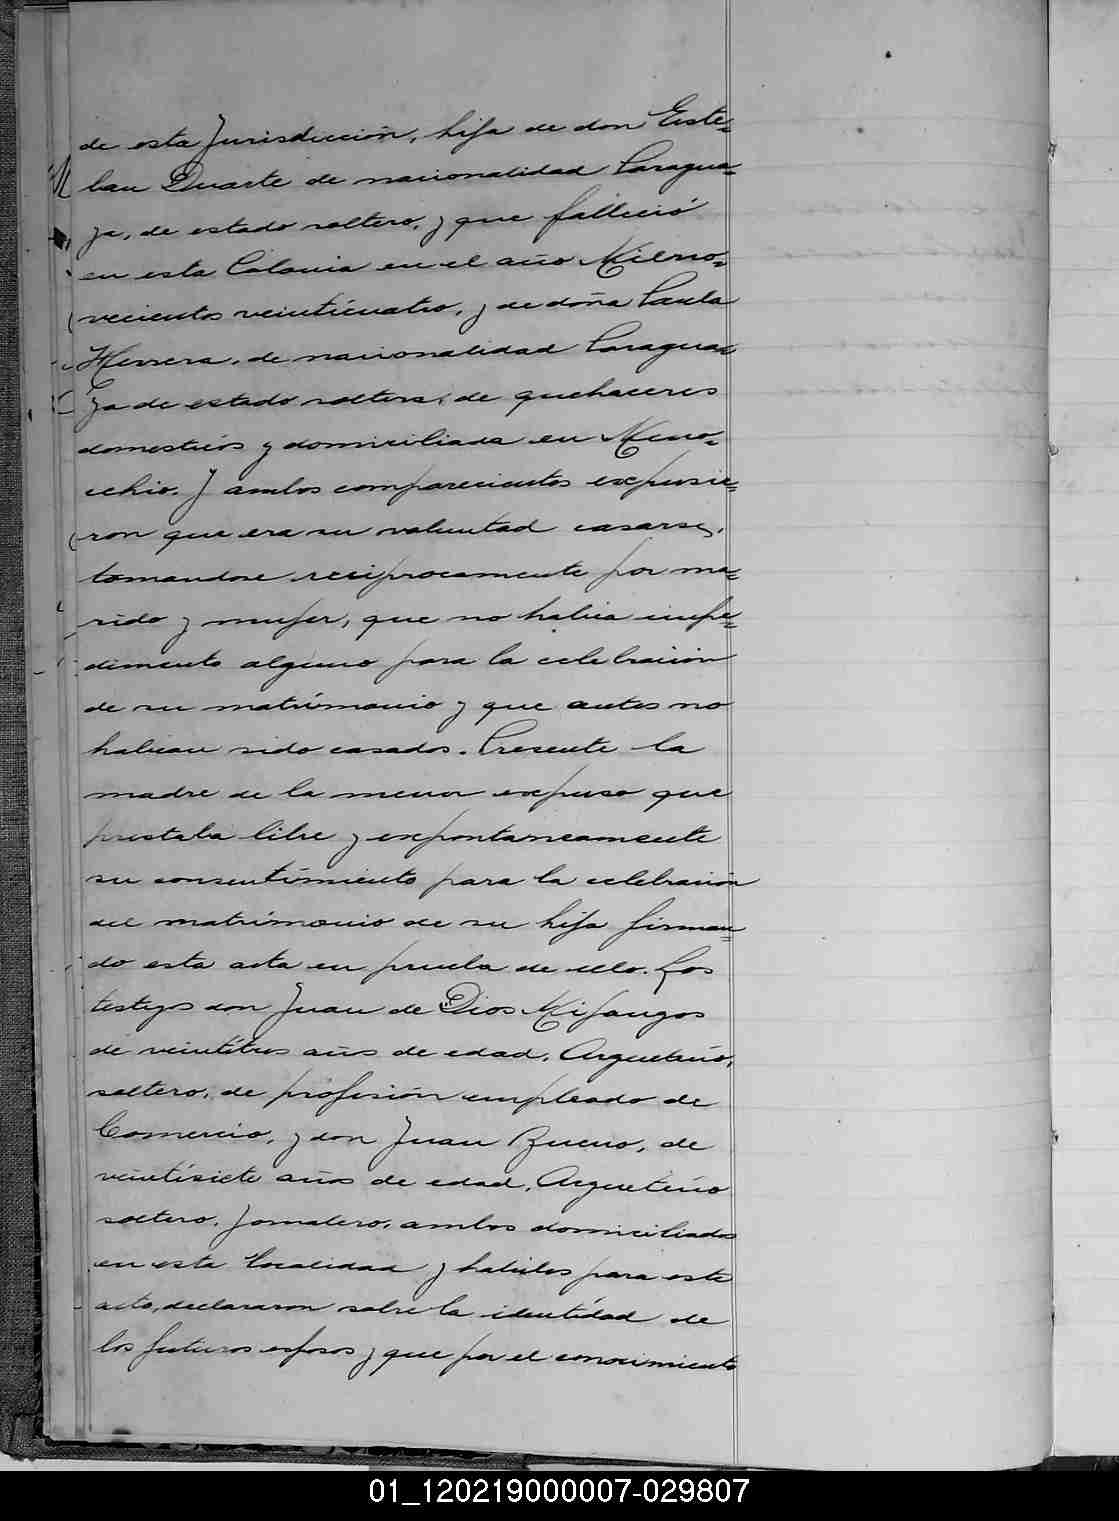 de esta Jurisdicción, hija de don Este=
ban Duarte de nacionalidad Paragua=
ya, de estado soltero, y que falleció
en esta Colonia en el año Milno=
vecientos veinticuatro, y de doña Paula
Herrera, de nacionalidad Paragua=
ya de estado soltera, de quehaceres
domesticos y domiciliada en Meno=
cchio. Y ambos comparecientes expusie=
ron que era su voluntad casarse,
tomandose reciprocamente por ma=
rido y mujer, que no habia impe=
dimento alguno para la celebración
de su matrimonio y que antes no
habian sido casados. Presente la
madre de la menor expuso que
prestaba libre y expontaneamente
su consentimiento para la celebracion
del matrimonio de su hija firman=
do esta acta en prueba de ello. Los
testigos don Juan de Dios Mijangos
de veintitres años de edad, Argentino,
soltero, de profesión empleado de
Comercio, y don Juan Bueno, de
veintisiete años de edad, Argentino
soltero, Jornalero, ambos domiciliados
en esta Localidad y habiles para este
acto, declararon sobre la identidad de
los futuros esposos y que por el conocimiento
01_120219000007-029807